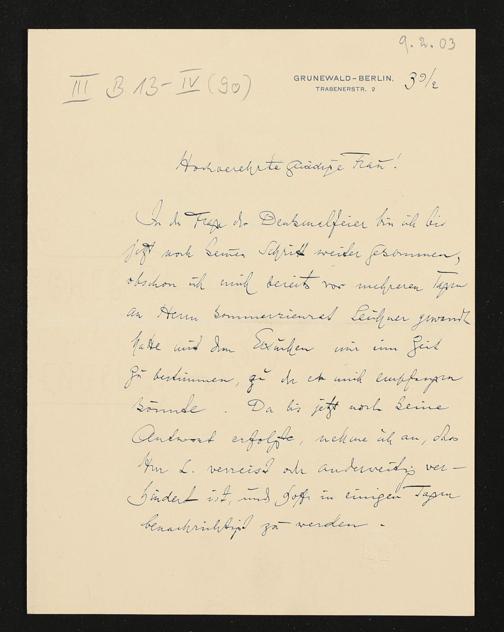 9. 2. 03
III B 13-IV (90)
GRUNEWALD-BERLIN.
TRABENERSTR. 2
9/2
Hochverehrte gnädige Frau!
In der Frage der Denkmalfeier bin ich bis
jetzt noch keinen Schritt weiter gekommen,
obschon ich mich bereits vor mehreren Tagen
an Herrn Kommerzienrat Leichner gewandt
hatte mit dem Ersuchen mir eine Zeit
zu bestimmen, zu der er mich empfangen
könnte. Da bis jetzt noch keine
Antwort erfolgte, nehme ich an, dass
Herr L. verreist oder anderweitig ver-
hindert ist, und hoffe in einigen Tagen
benachrichtigt zu werden.